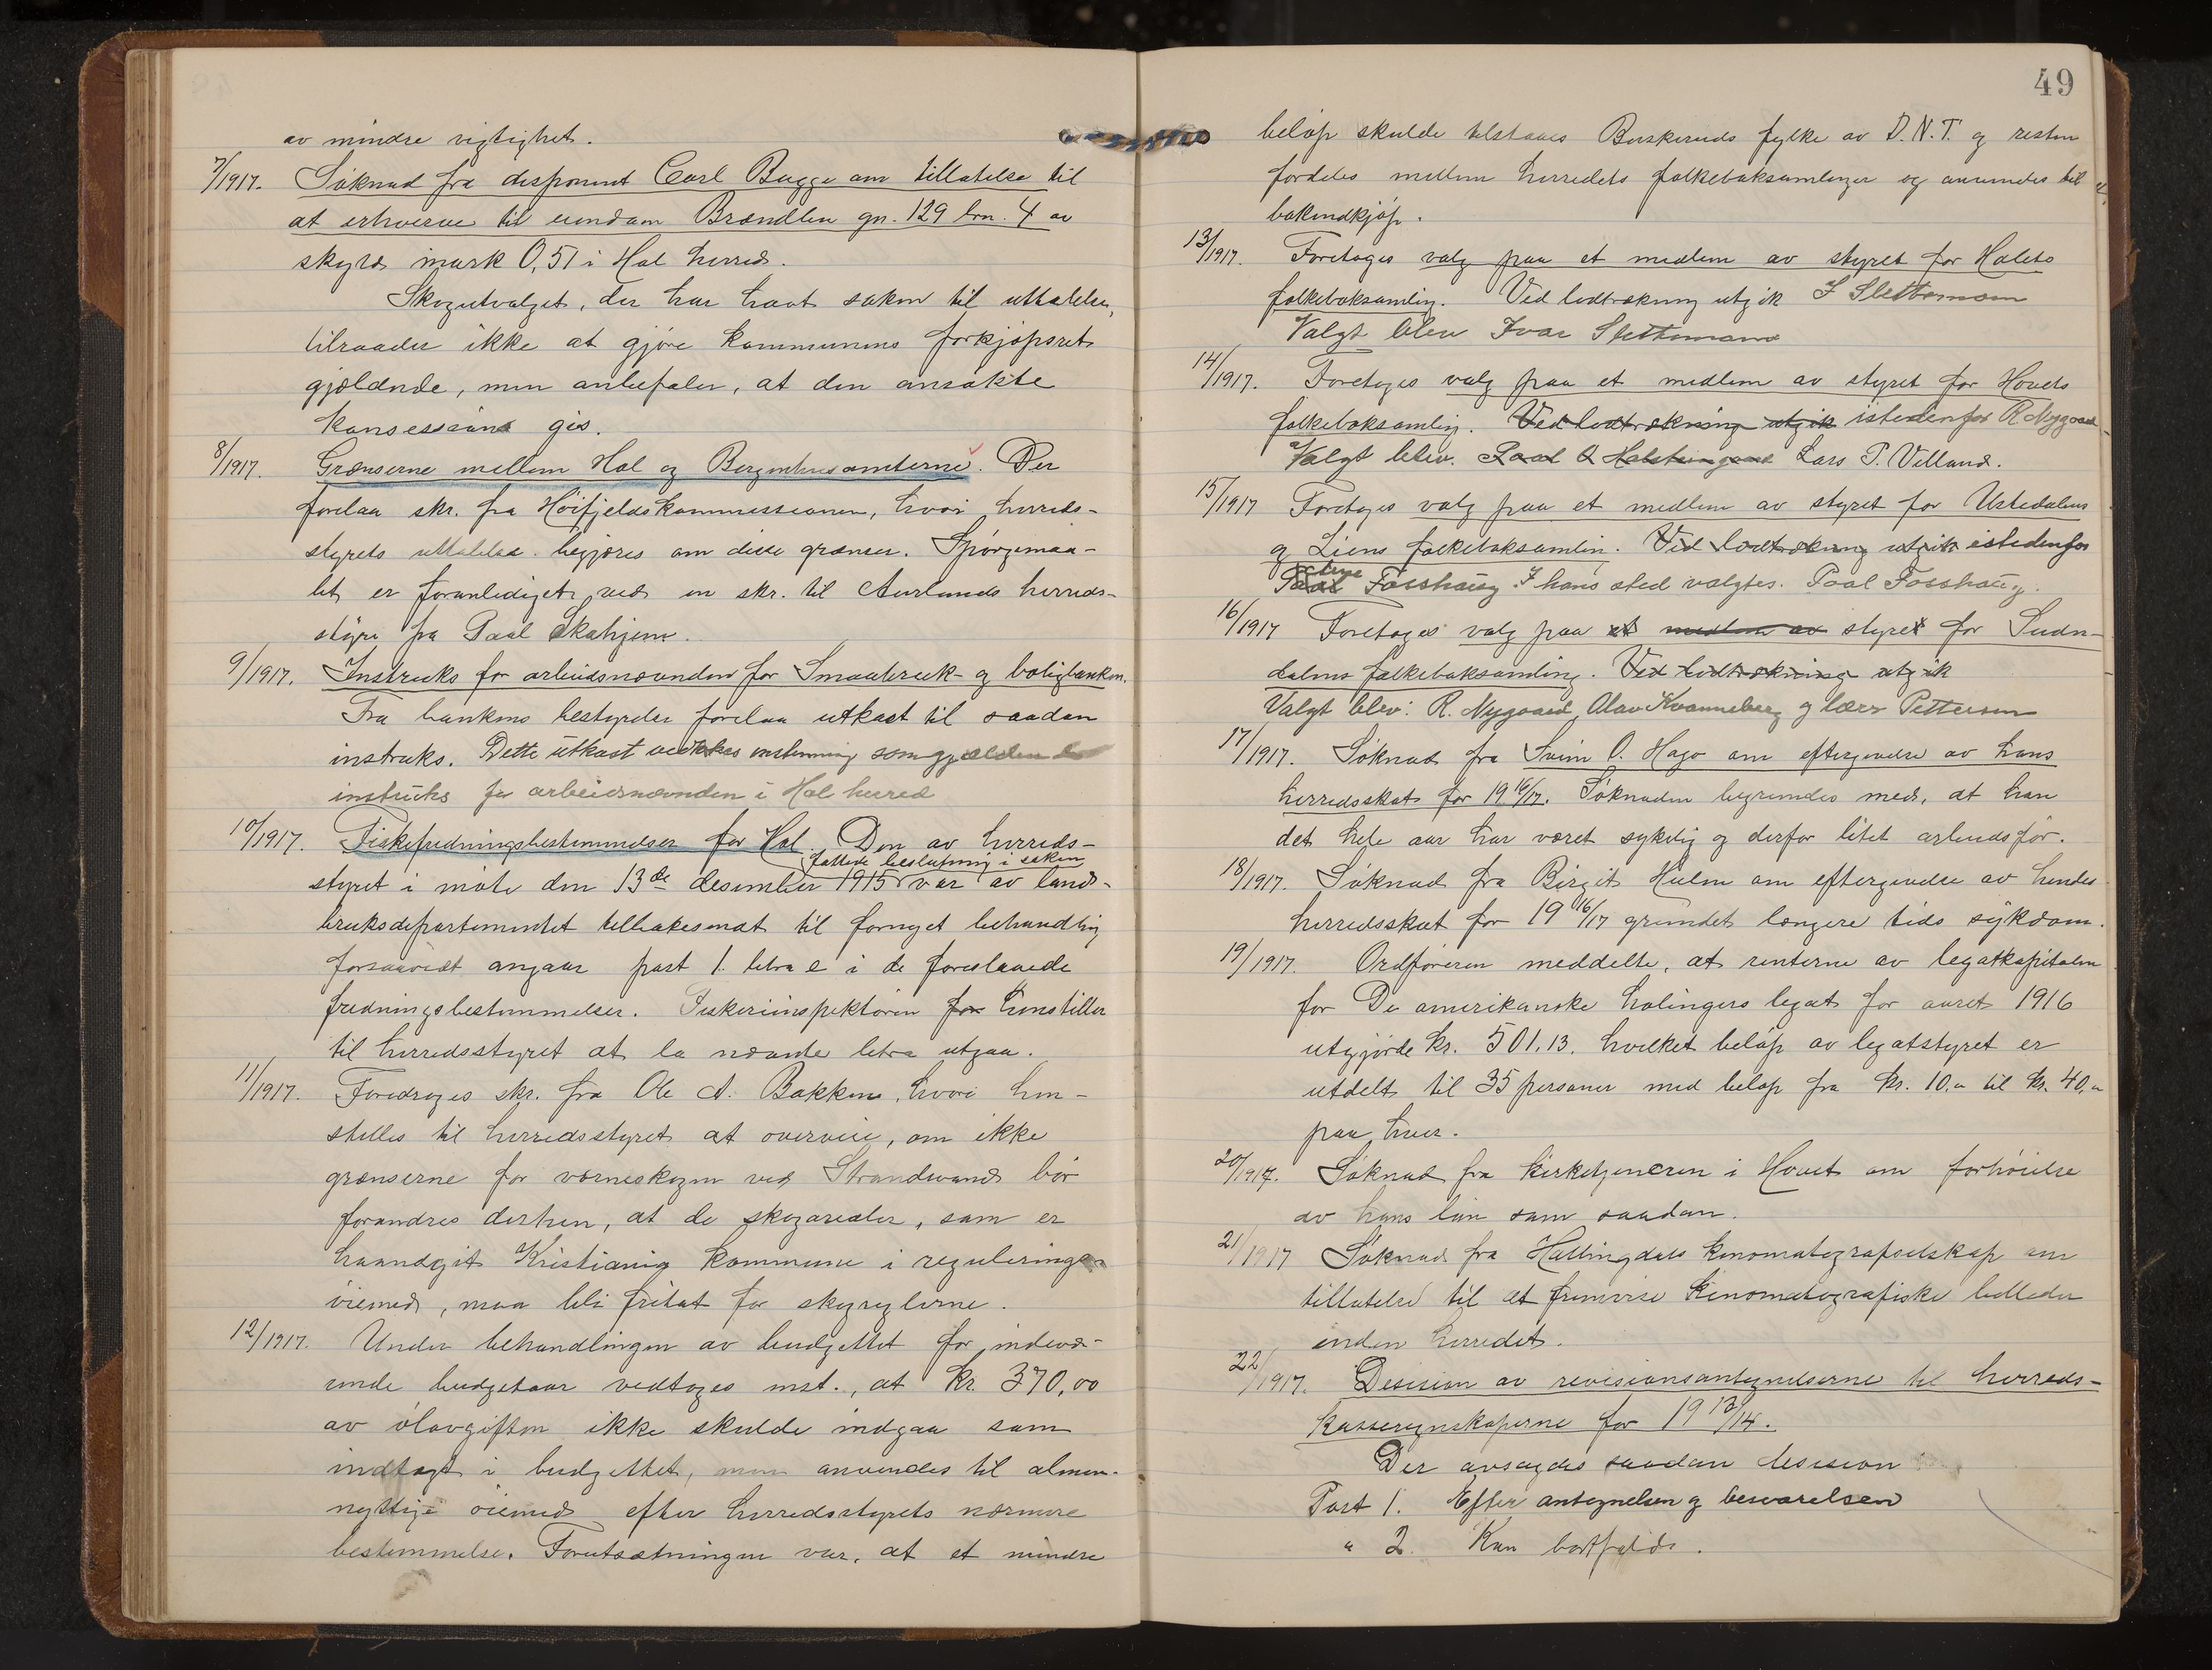 av mindre vigtighet.
7/1917. Söknad fra disponent Carl Bugge om tillatelse til
at erhverve til eiendom Brændlien gn. 129 brn. 4 av
skyld mark 0,51 i Hol herred.
Skogutvalget, der har havt saken til uttalelse,
tilraader ikke at gjöre kommunens forkjöpsret
gjældende, men anbefaler, at den ansökte
konsession gis.
8/1917. Grænserne mellem Hol og Bergenhusamterne. Der
forelaa skr. fra Höifjeldskommissionen, hvori herreds-
styrets uttalelse begjæres om disse grænser. Spörgsmaa-
let er foranlediget ved en skr. til Aurlands herreds-
styre fra Paal Skahjem.
9/1917. Instruks for arbeidsnævnden for Smaabruk- og boligbanken.
Fra bankens bestyrelse forelaa utkast til saadan
instruks. Dette utkast vedtokes enstemmig som gjældende
instruks for arbeidsnævnden i Hol herred
10/1917. Fiskefredningsbestemmelser for Hol. Den av herreds-
fattede beslutning i saken
styret i möte den 13de desember 1915 var av land-
bruksdepartementet tilbakesendt til fornyet behandling
forsaavidt angaar post 1 litra e i de foreslaaede
fredningsbestemmelser. Fiskeriinspektören for henstiller
til herredsstyret at la nævnte litra utgaa.
11/1917. Foredroges skr. fra Ole A. Bakken, hvori hen-
stilles til herredsstyret at overveie, om ikke
grænserne for verneskogen ved Strandevand bör
forandres derhen, at de skogarealer, som er
haandgit Kristiania kommune i regulerings-
öiemed, maa bli fritat for skogreglerne.
12/1917. Under behandlingen av budgettet for indevæ-
rende budgetaar vedtoges enst., at kr. 370,00
av ölavgiften ikke skulde indgaa som
indtægt i budgettet, men anvendes til almen-
nyttige öiemed efter herredsstyrets nærmere
bestemmelse. Forutsætningen var, at et mindre
49
belöp skulde tilstaaes Buskeruds fylke av D.N.T. og resten
fordeles mellem herredets folkeboksamlinger og anvendes til
bokindkjöp.
13/1917. Foretoges valg paa et medlem av styret for Holets
folkeboksamling. Ved lodtrækning utgik I Slettemoen
Valgt blev Ivar Slettemoen
14/1917. Foretoges valg paa et medlem av styret for Hovets
folkeboksamling. Ved lodtrækning utgik istedenfor R Nygaard
Valgt blev. Paal O Holstengaard Lars P. Villand.
15/1917 Foretoges valg paa et medlem av styret for Ustedalens
og Liens folkeboksamlin. Ved lodtrækning utgik istedenfor
Paal Fosshaug I hans sted valgtes. Paal Fosshaug.
16/1917 Foretoges valg paa et medlem av styret for Sudn-
dalens folkeboksamling. Ved lodtrækning utgik
Valgt blev: R. Nygaard, Olav Kvanneberg og lærer Pettersen
17/1917. Söknad fra Svein O. Hago om eftergivelse av hans
herredsskat for 1916/17. Söknaden begrundes med, at han
det hele aar har været sykelig og derfor litet arbeidsför.
18/1917. Söknad fra Birgit Holm om eftergivelse av hendes
herredsskat for 1916/17 grundet længere tids sykdom.
19/1917. Ordföreren meddelte, at renterne av legatkapitalen
for De amerikanske holingers legat for aaret 1916
utgjorde kr. 501.13. hvilket belöp av legatstyret er
utdelt til 35 personer med belöp fra kr. 10,- til kr. 40,-
paa hver.
20/1917. Söknad fra kirketjeneren i Hovet om forhöielse
av hans lön som saadan.
21/1917 Söknad fra Hallingdals kinomatografselskap om
tillatelse til at fremvise kinomatografiske billeder
inden herredet.
22/1917. Desision av revisionsantegnelserne til herreds-
kasseregnskaperne for 1913/14.
Der avsagdes saadan desision
Post 1. Efter antegnelsen og besvarelsen
" 2. Kan bortfalde.